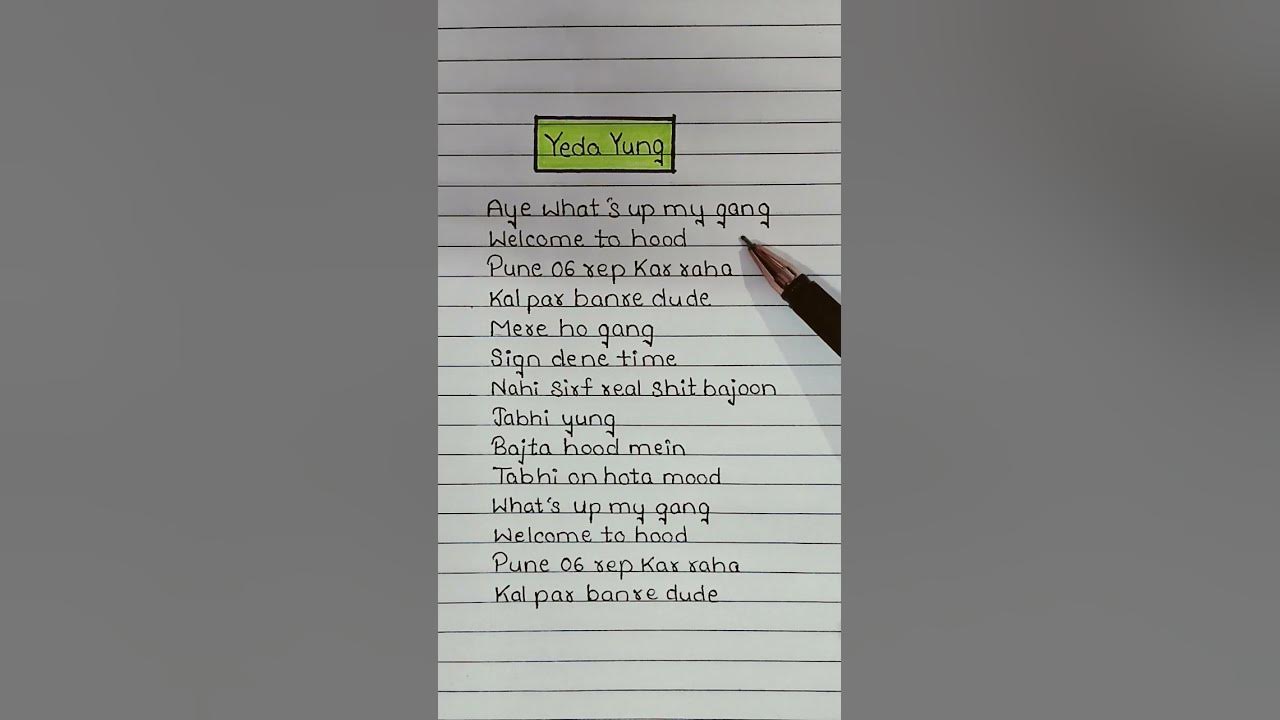 Yeda Yung
Aye What's up my gang
Welcome to hood
Pune 06 rep Kar raha
Kal par banre dude
Mere ho gang
Sign dene time
Nahi Sirf real Shit bajoon
Jabhi yung
Bajta hood mein
Tabhi on hota mood
What's up my gang
Welcome to hood
Pune 06 rep Kar raha
Kal par banre dude